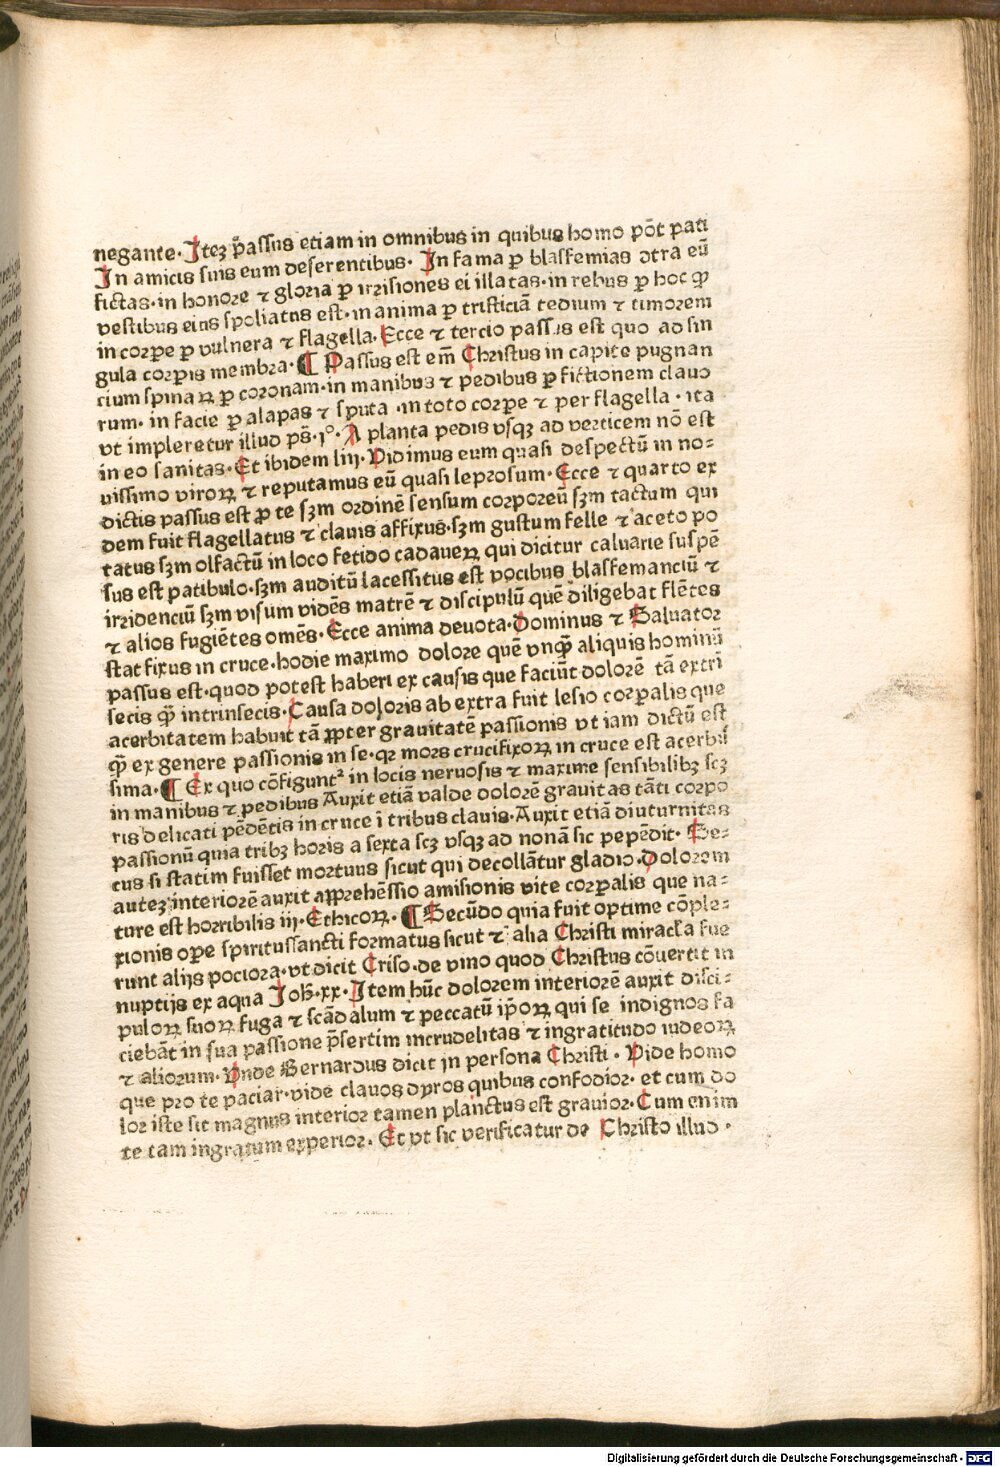 negante. Itez ꝑassus etiam in omnibus in quibus homo põt pati
In amicis suis eum deserentibus. In fama ꝑ blasfemias ↄtra eũ
fictas. in honore ⁊ gloria ꝑ irrisiones ei illatas. in rebus ꝑ hoc ꝙ
vestibus eius spoliatus est. in anima ꝑ tristiciã tedium ⁊ timorem
in corpe ꝑ vulnera ⁊ flagella. Ecce ⁊ tercio passus est quo ad sin
gula corpis membra. ¶ Passus est em̃ Christus in capite pugnan
cium spinaꝝ ꝑ coronam. in manibus ⁊ pedibus ꝑ fictionem clauo
rum. in facie ꝑ alapas ⁊ sputa. in toto corpe ⁊ per flagella. ita
vt impleretur illud ps̃. iº. A planta pedis vsqꝫ ad verticem nõ est
in eo sanitas. Et ibidem liij. Vidimus eum quasi despectũ in no⸗
uissimo viroꝝ ⁊ reputamus eũ quasi leprosum. Ecce ⁊ quarto ex
dictis passus est ꝓ te sꝫm ordinẽ sensum corporeũ sꝫm tactum qui
dem fuit flagellatus ⁊ clauis affixus. sꝫm gustum felle ⁊ aceto po
tatus sꝫm olfactũ in loco fetido cadaueꝝ qui dicitur caluarie suspẽ
sus est patibulo. sꝫm auditũ lacessitus est vocibus blasfemanciũ ⁊
irridenciũ sꝫm visum vidẽs matrẽ ⁊ discipulũ quẽ diligebat flẽtes
⁊ alios fugiẽtes omẽs. Ecce anima deuota. Dominus ⁊ Saluator
stat fixus in cruce. hodie maximo dolore quẽ vnꝙ̃ aliquis hominũ
passus est. quod potest haberi ex causis que faciũt dolorẽ tã extri
secis ꝙ̃ intrinsecis. Causa doloris ab extra fuit lesio corpalis que
acerbitatem habuit tã ꝓpter grauitatẽ passionis vt iam dictũ est
ꝙ̃ ex genere passionis in se. qꝛ mors crucifixoꝝ in cruce est acerbis
sima. ¶ Ex quo cõfigunt² in locis neruosis ⁊ maxime sensibilibꝫ scꝫ
in manibus ⁊ pedibus Auxit etiã valde dolorẽ grauitas tãti corpo
ris delicati pẽdẽtis in cruce ĩ tribus clauis. Auxit etiã diuturnitas
passionũ quia tribꝫ horis a sexta scꝫ vsqꝫ ad nonã sic pepẽdit. Se⸗
cus si statim fuisset mortuus sicut qui decollãtur gladio. Dolorem
autez interiorẽ auxit apprehẽssio amisionis vite corpalis que na⸗
ture est horribilis iij. Ethicoꝝ. ¶ Secũdo quia fuit optime cõple⸗
xionis ope spiritussancti formatus sicut ⁊ alia Christi miracła fue
runt alijs pociora. vt dicit Criso. de vino quod Christus cõuertit in
nuptijs ex aqua Ioh̃. xx. Item hũc dolorem interiorẽ auxit disci⸗
puloꝝ suoꝝ fuga ⁊ scãdalum ⁊ peccatũ ip̃oꝝ qui se indignos fa
ciebãt in sua passione p̃sertim incrudelitas ⁊ ingratitudo iudeoꝝ
⁊ aliorum. Vnde Bernardus dicit in persona Christi. Vide homo
que pro te paciar. vide clauos dyros quibus confodior. et cum do
lor iste sit magnus interior tamen planctus est grauior. Cum enim
te tam ingratum experior. Et vt sic verificatur de Christo illud.
Digitalisierung gefördert durch die Deutsche Forschungsgemeinschaft - DFG